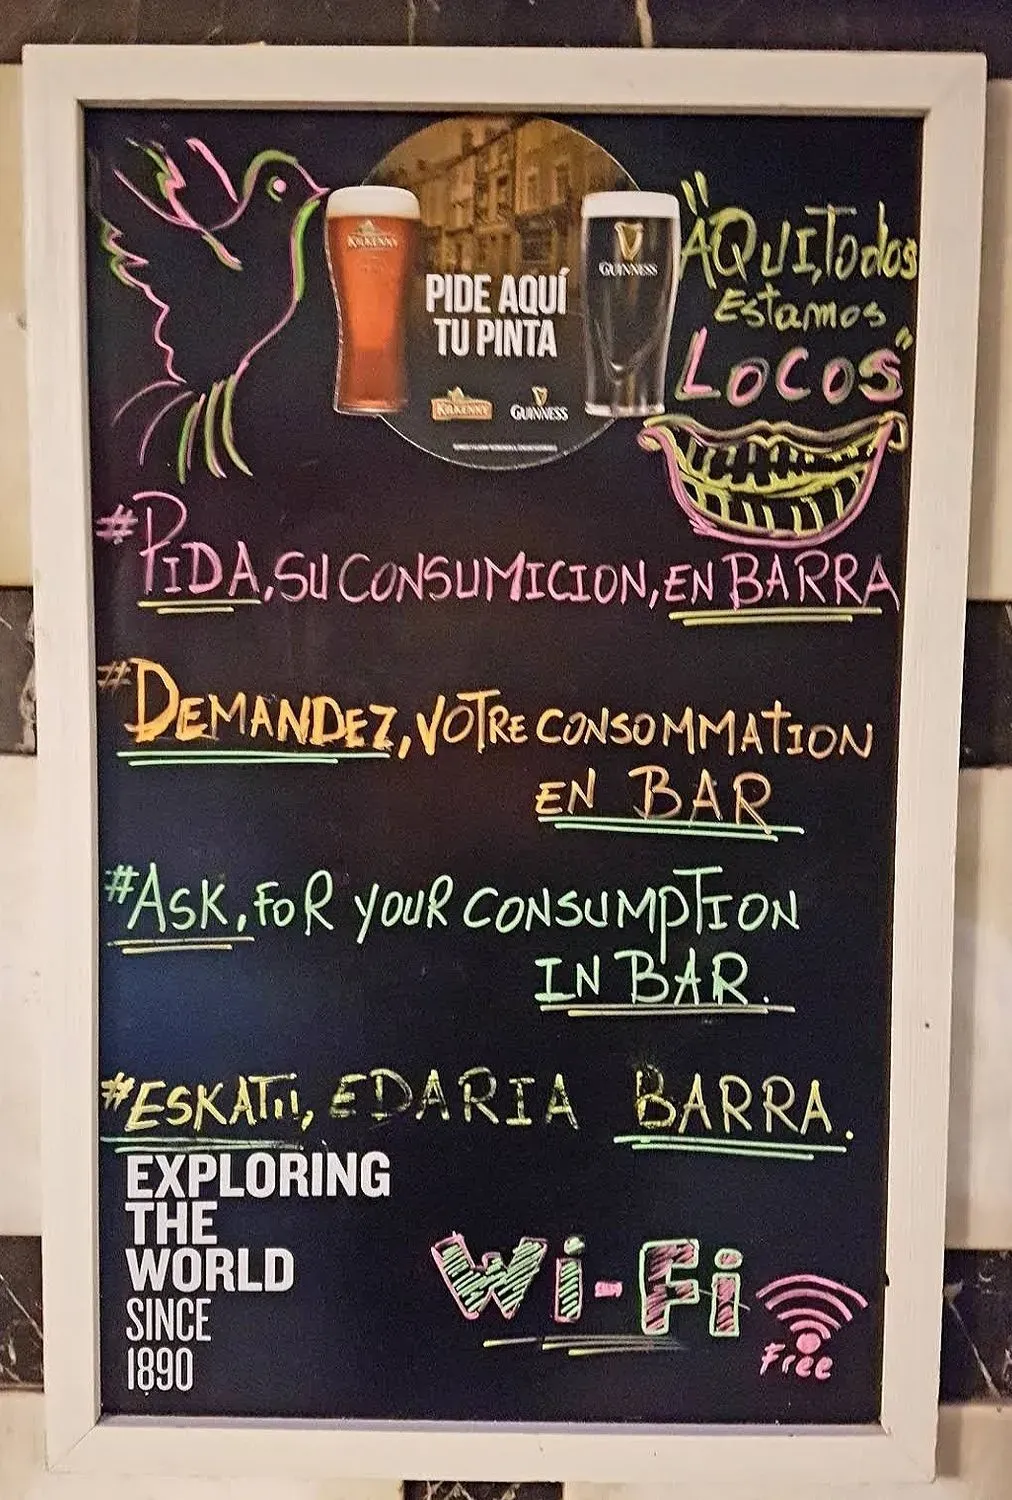 KILKENNY
GUINNESS
PIDE AQUÍ
TU PINTA
KILKENNY GUINNESS
"AQUI, Todos
Estamos
LOCOS"
#PIDA, SU CONSUMICION, EN BARRA
#DEMANDEZ, VOTRE CONSOMMATION
EN BAR
#ASK, FOR YOUR CONSUMPTION
IN BAR.
#ESKATU, EDARIA BARRA.
EXPLORING
THE
WORLD
SINCE
1890
Wi-Fi
Free